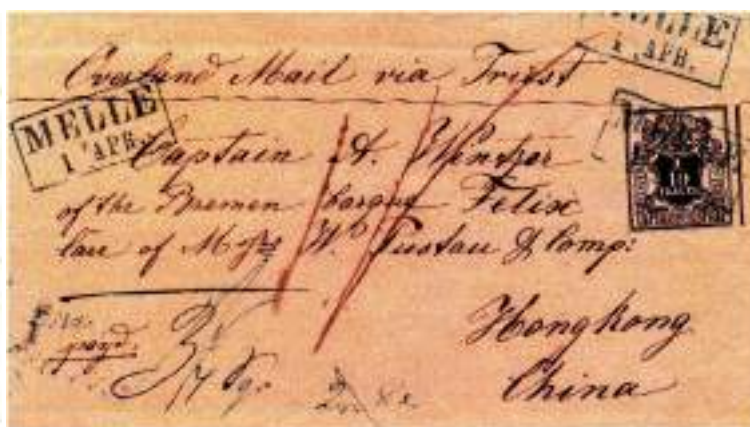 MELLE
1 APR.
Overland Mail via Triest
MELLE
1 APR.
Captain A.
of the Bremen barque Felix
Care of Messrs Wm Pustau & Comp:
Hongkong
China
payd.